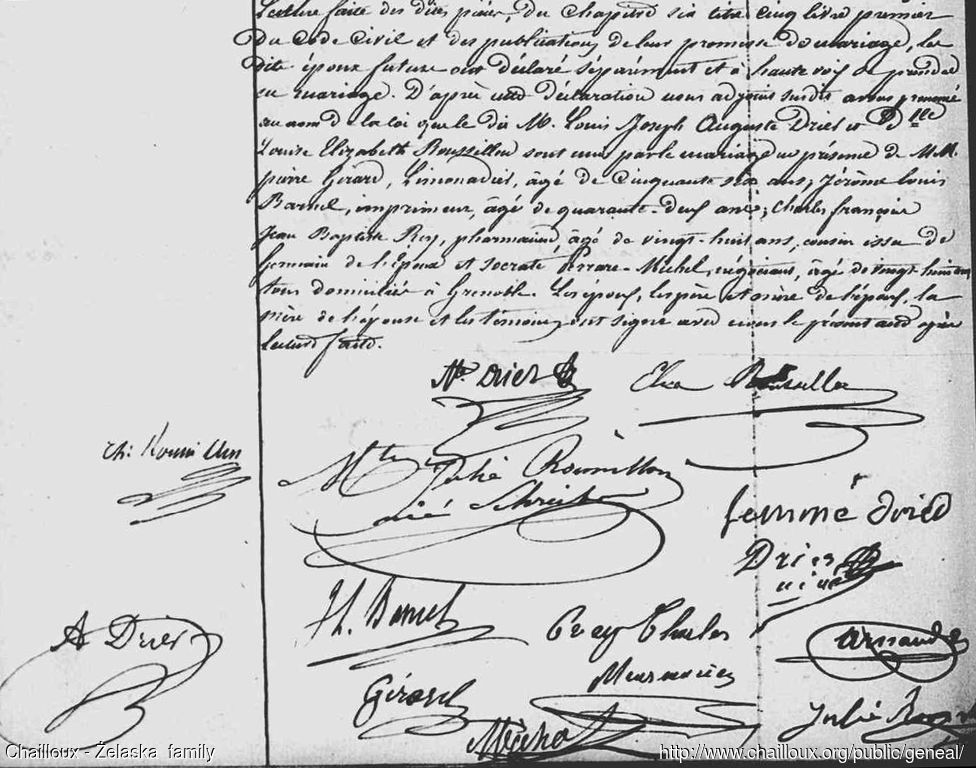 Lecture faite des dites pièces, du chapitre six titre cinq livre premier
Du Code Civil et des publications de leur promesse de mariage, les
dits époux futurs ont déclaré séparément et à haute voix se prendre
en mariage. D'après cette déclaration nous adjoint susdit avons prononcé
au nom de la loi que le dit M. Louis Joseph Auguste Drier et Dlle
Louise Elizabeth Roussillon sont unis par le mariage en présence de MM.
pierre Girard, Limonadier, âgé de Cinquante six ans, Jérôme Louis
Barnel, imprimeur, âgé de quarante-deux ans; Charles françois
Jean Baptiste Rey, pharmacien, âgé de vingt-huit ans, cousin issu de
germain de l'époux et Socrate Michel, négociant, âgé de vingt huit ans
tous domiciliés à Grenoble. Les époux, les père et mère de l'époux, la
mère de l'épouse et les témoins ont signé avec nous le présent acte après
lecture faite.
Drier
Roussillon
Ch:
Julie Roussillon
née
femme drier
Drier
Barnel
A Drier
Charles
Arnaud
Girard
Julie
Chailloux - Želaska family
http://www.chailloux.org/public/geneal/